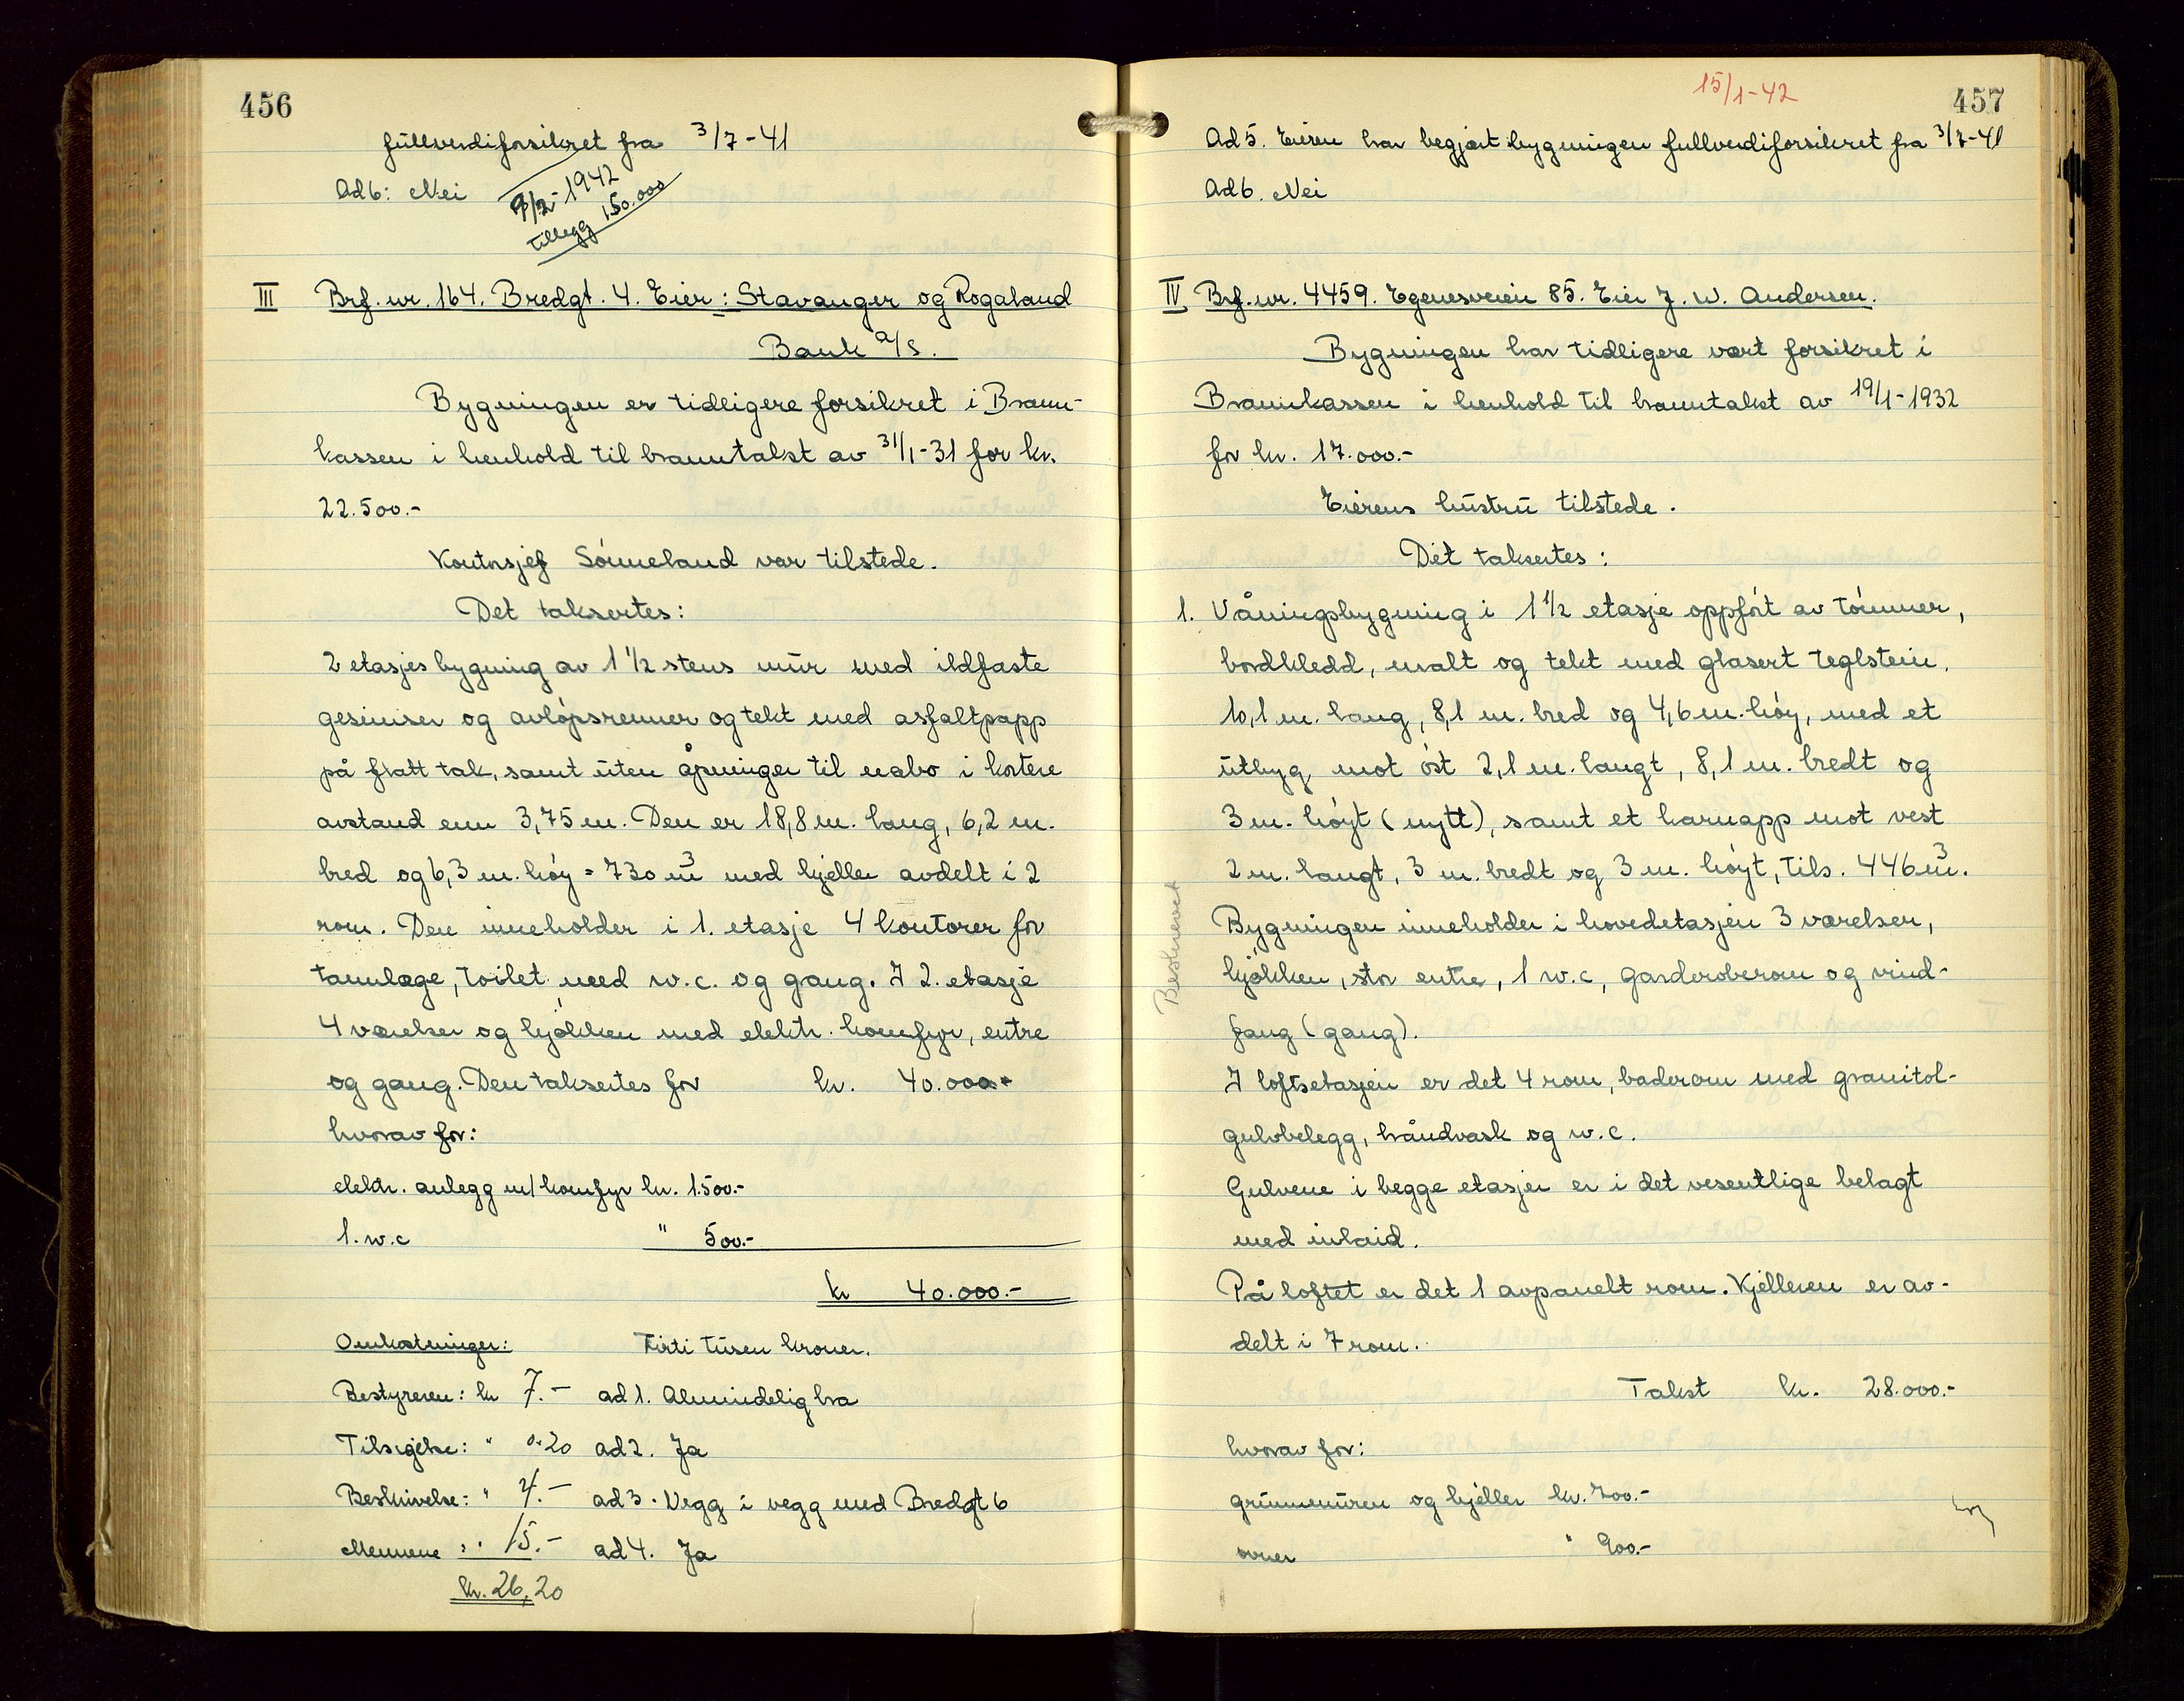 456
fullverdiforsikret fra 3/7-41
Ad 6: Nei
9/2-1942
tillegg 150.000
III Brf. nr. 164. Bredgt. 4. Eier: Stavanger og Rogaland
Bank A/S.
Bygningen er tidligere forsikret i Brann-
kassen i henhold til branntakst av 31/1-31 for kr.
22.500.-
Kontorsjef Sömmeland var tilstede.
Det taksertes:
2 etasjes bygning av 1 1/2 stens mur med ildfaste
gesimser og avlöpsrenner og tekt med asfaltpapp
på flatt tak, samt uten åpninger til nabo i kortere
avstand enn 3,75 m. Den er 18,8 m. lang, 6,2 m.
bred og 6,3 m. höy = 730 m³ med kjeller avdelt i 2
rom. Den inneholder i 1. etasje 4 kontorer for
tannlæge, toilet med w.c. og gang. I 2. etasje
4 værelser og kjökken med elektr. komfyr, entre
og gang. Den taksertes for kr. 40.000.-
hvorav for:
elektr. anlegg m/komfyr kr. 1.500.-
1. w.c " 500.-
kr 40.000.-
Omkostninger: Firti tusen kroner.
Bestyreren: kr 7.- ad 1. Almindelig bra
Tilsigelse: " 0.20 ad 2. Ja
Beskrivelse: " 4.- ad 3. Vegg i vegg med Bredgt 6
Mennene : " 15.- ad 4. Ja
kr. 26,20
15/1-42
457
Ad 5. Eieren har begjært bygningen fullverdiforsikret fra 3/7-41
Ad 6. Nei
IV Brf. nr. 4459. Egenesveien 85. Eier J. W. Andersen.
Bygningen har tidligere vært forsikret i
Brannkassen i henhold til branntakst av 19/1-1932
for kr. 17.000.-
Eierens hustru tilstede.
Det taksertes:
1. Våningsbygning i 1 1/2 etasje oppfört av tömmer,
bordkledd, malt og tekt med glasert teglstein.
10,1 m. lang, 8,1 m. bred og 4,6 m. höy, med et
utbygg mot öst 2,1 m. langt, 8,1 m. bredt og
3 m. höyt (nytt), samt et karnapp mot vest
2 m. langt, 3 m. bredt og 3 m. höyt, tils. 446 m³.
Beskrevet
Bygningen inneholder i hovedetasjen 3 værelser,
kjökken, stor entre, 1 w.c, garderoberom og vind-
fang (gang).
I loftsetasjen er det 4 rom, baderom med granitol-
gulvbelegg, håndvask og w.c.
Gulvene i begge etasjer er i det vesentlige belagt
med inlaid.
På loftet er det 1 avpanelt rom. Kjelleren er av-
delt i 7 rom.
Takst kr. 28.000.-
hvorav for:
grunnmuren og kjeller kr. 700.-
ovner " 900.-